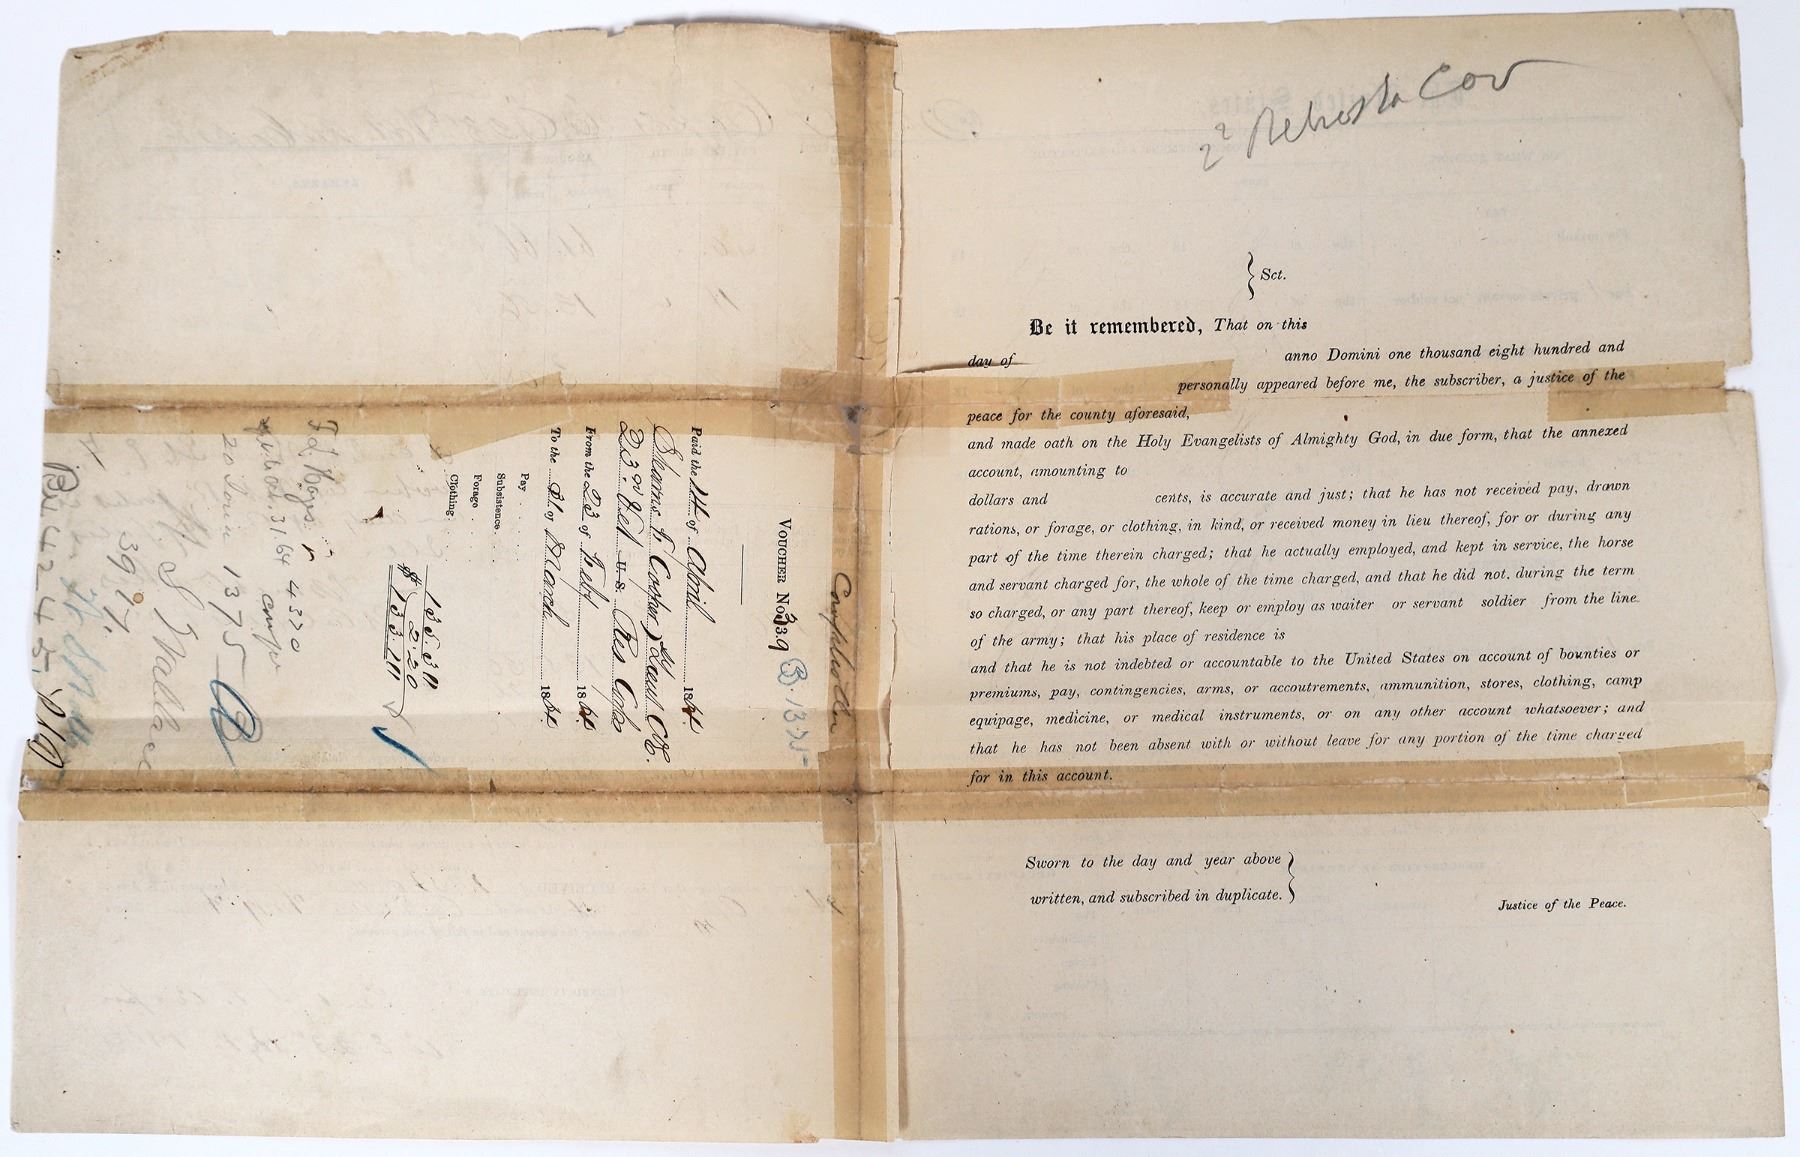 2 Nebraska Cav
Sct.
Be it remembered, That on this
day of anno Domini one thousand eight hundred and
personally appeared before me, the subscriber, a justice of the
peace for the county aforesaid,
and made oath on the Holy Evangelists of Almighty God, in due form, that the annexed
account, amounting to
dollars and cents, is accurate and just; that he has not received pay, drawn
rations, or forage, or clothing, in kind, or received money in lieu thereof, for or during any
part of the time therein charged; that he actually employed, and kept in service, the horse
and servant charged for, the whole of the time charged, and that he did not, during the term
so charged, or any part thereof, keep or employ as waiter or servant soldier from the line
of the army; that his place of residence is
and that he is not indebted or accountable to the United States on account of bounties or
premiums, pay, contingencies, arms, or accoutrements, ammunition, stores, clothing, camp
equipage, medicine, or medical instruments, or on any other account whatsoever; and
that he has not been absent with or without leave for any portion of the time charged
for in this account.
Sworn to the day and year above
written, and subscribed in duplicate.
Justice of the Peace.
VOUCHER No. 339
B. 1375
Paid the 14 of April 1864.
Cooper, Lieut
23rd Vet U.S. Res Corps
From the 23 of Feby 1864
To the 31 of March 1864.
Pay
Subsistence
Forage
Clothing
135.31
2.20
$133.11
4370
1375
Wallace
3917.